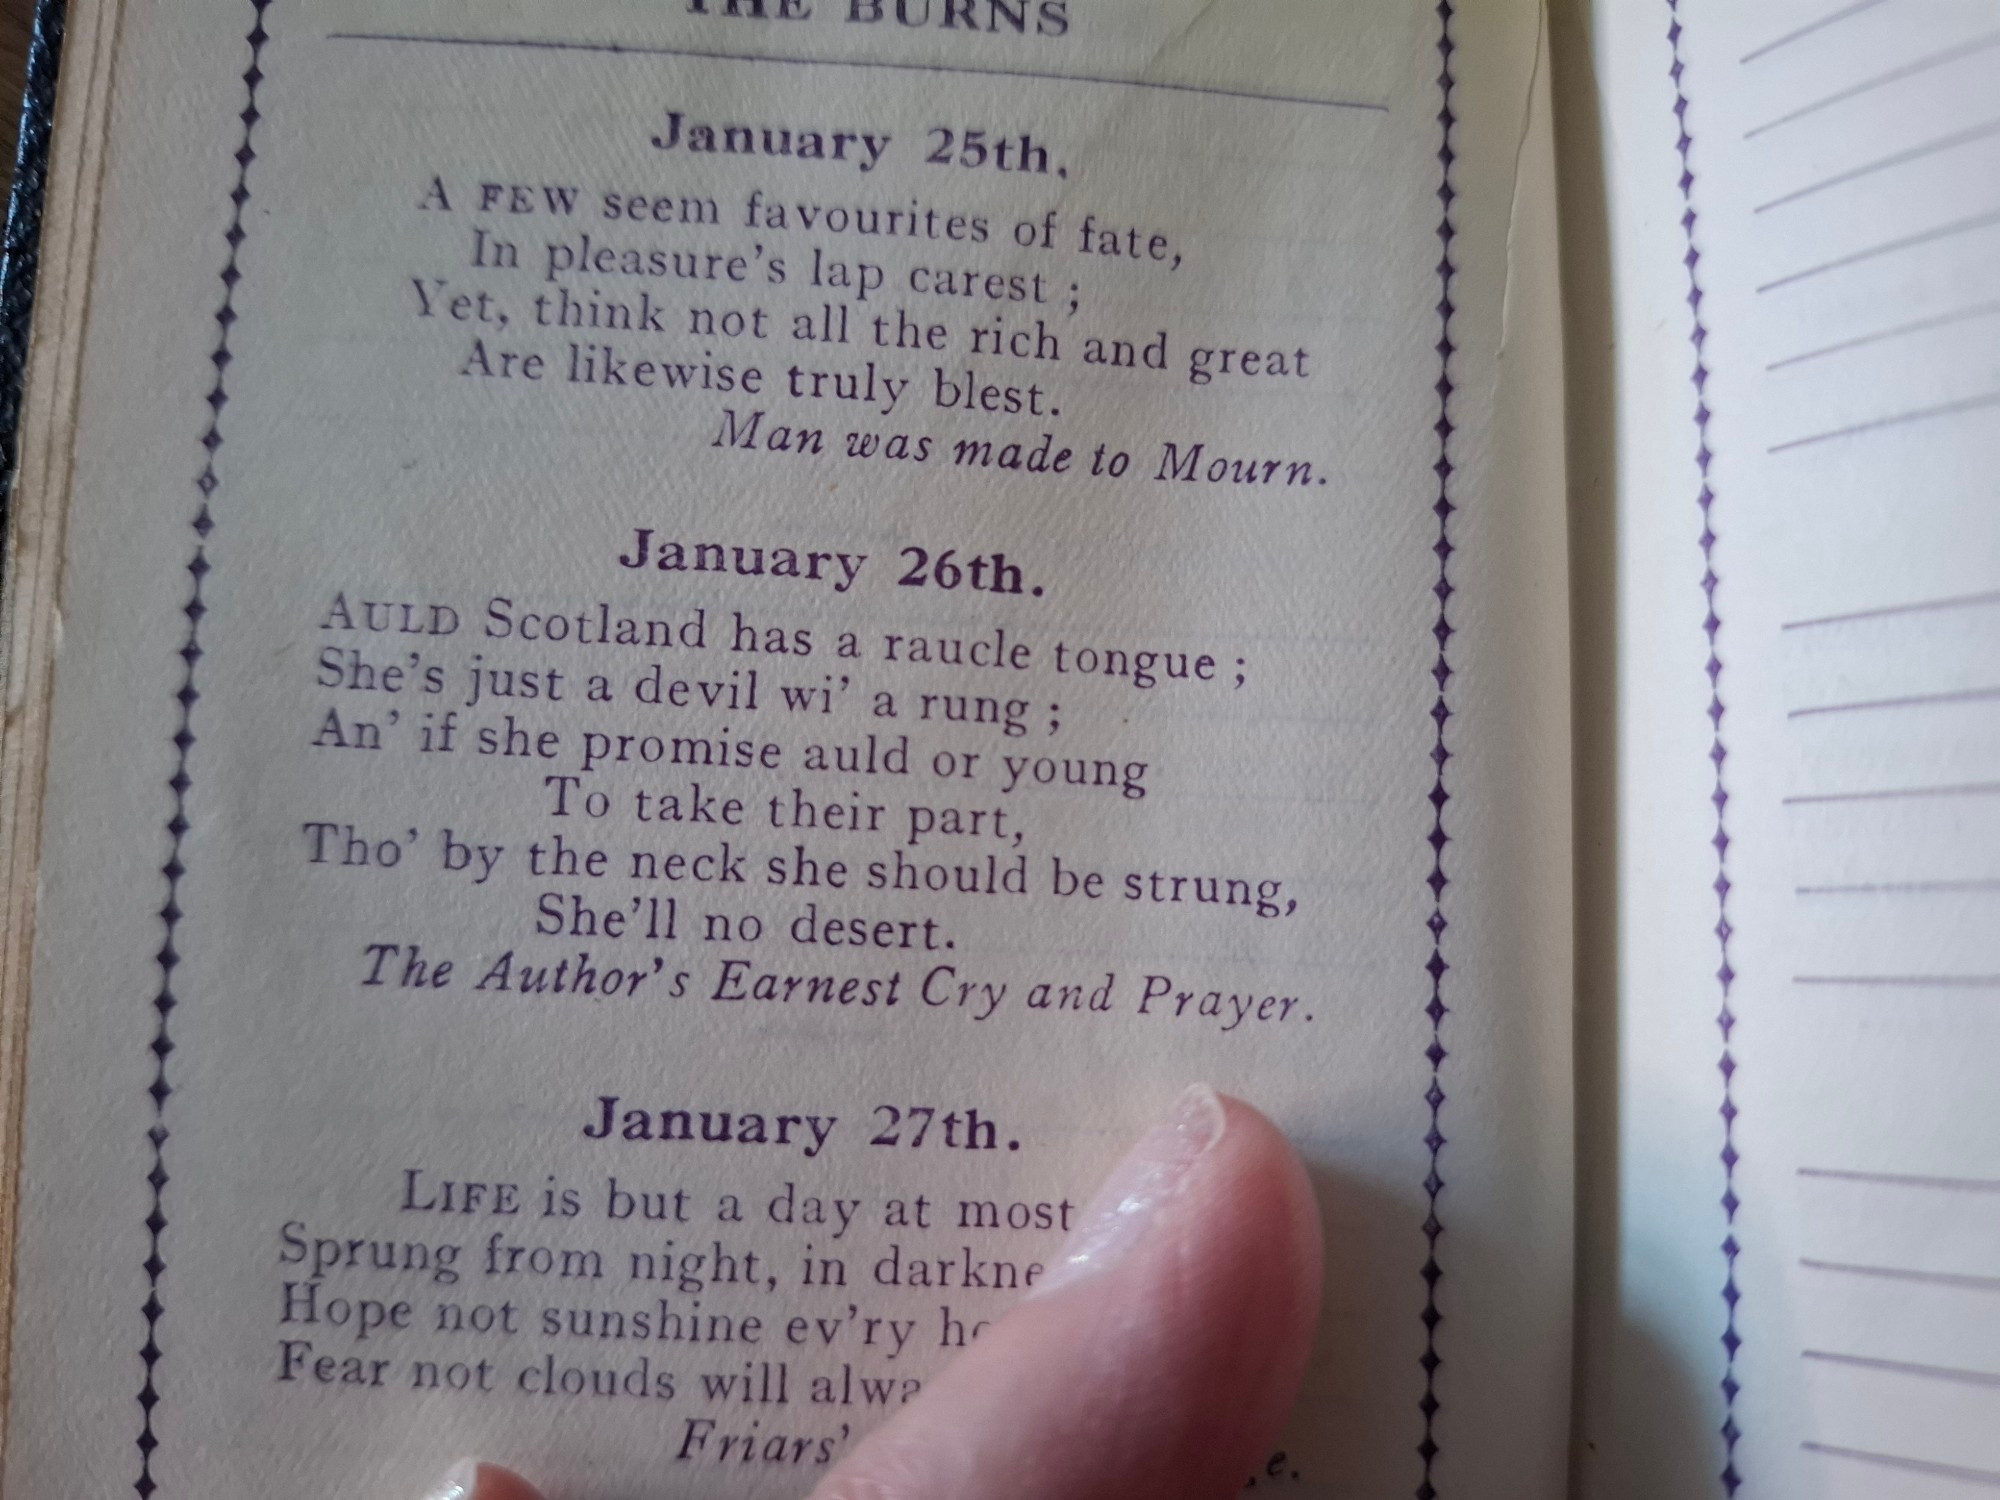 THE BURNS
January 25th.
A FEW seem favourites of fate,
In pleasure's lap carest ;
Yet, think not all the rich and great
Are likewise truly blest.
Man was made to Mourn.
January 26th.
AULD Scotland has a raucle tongue ;
She's just a devil wi' a rung ;
An' if she promise auld or young
To take their part,
Tho' by the neck she should be strung,
She'll no desert.
The Author's Earnest Cry and Prayer.
January 27th.
LIFE is but a day at most
Sprung from night, in
Hope not sunshine ev'ry
Fear not clouds will
Friars'